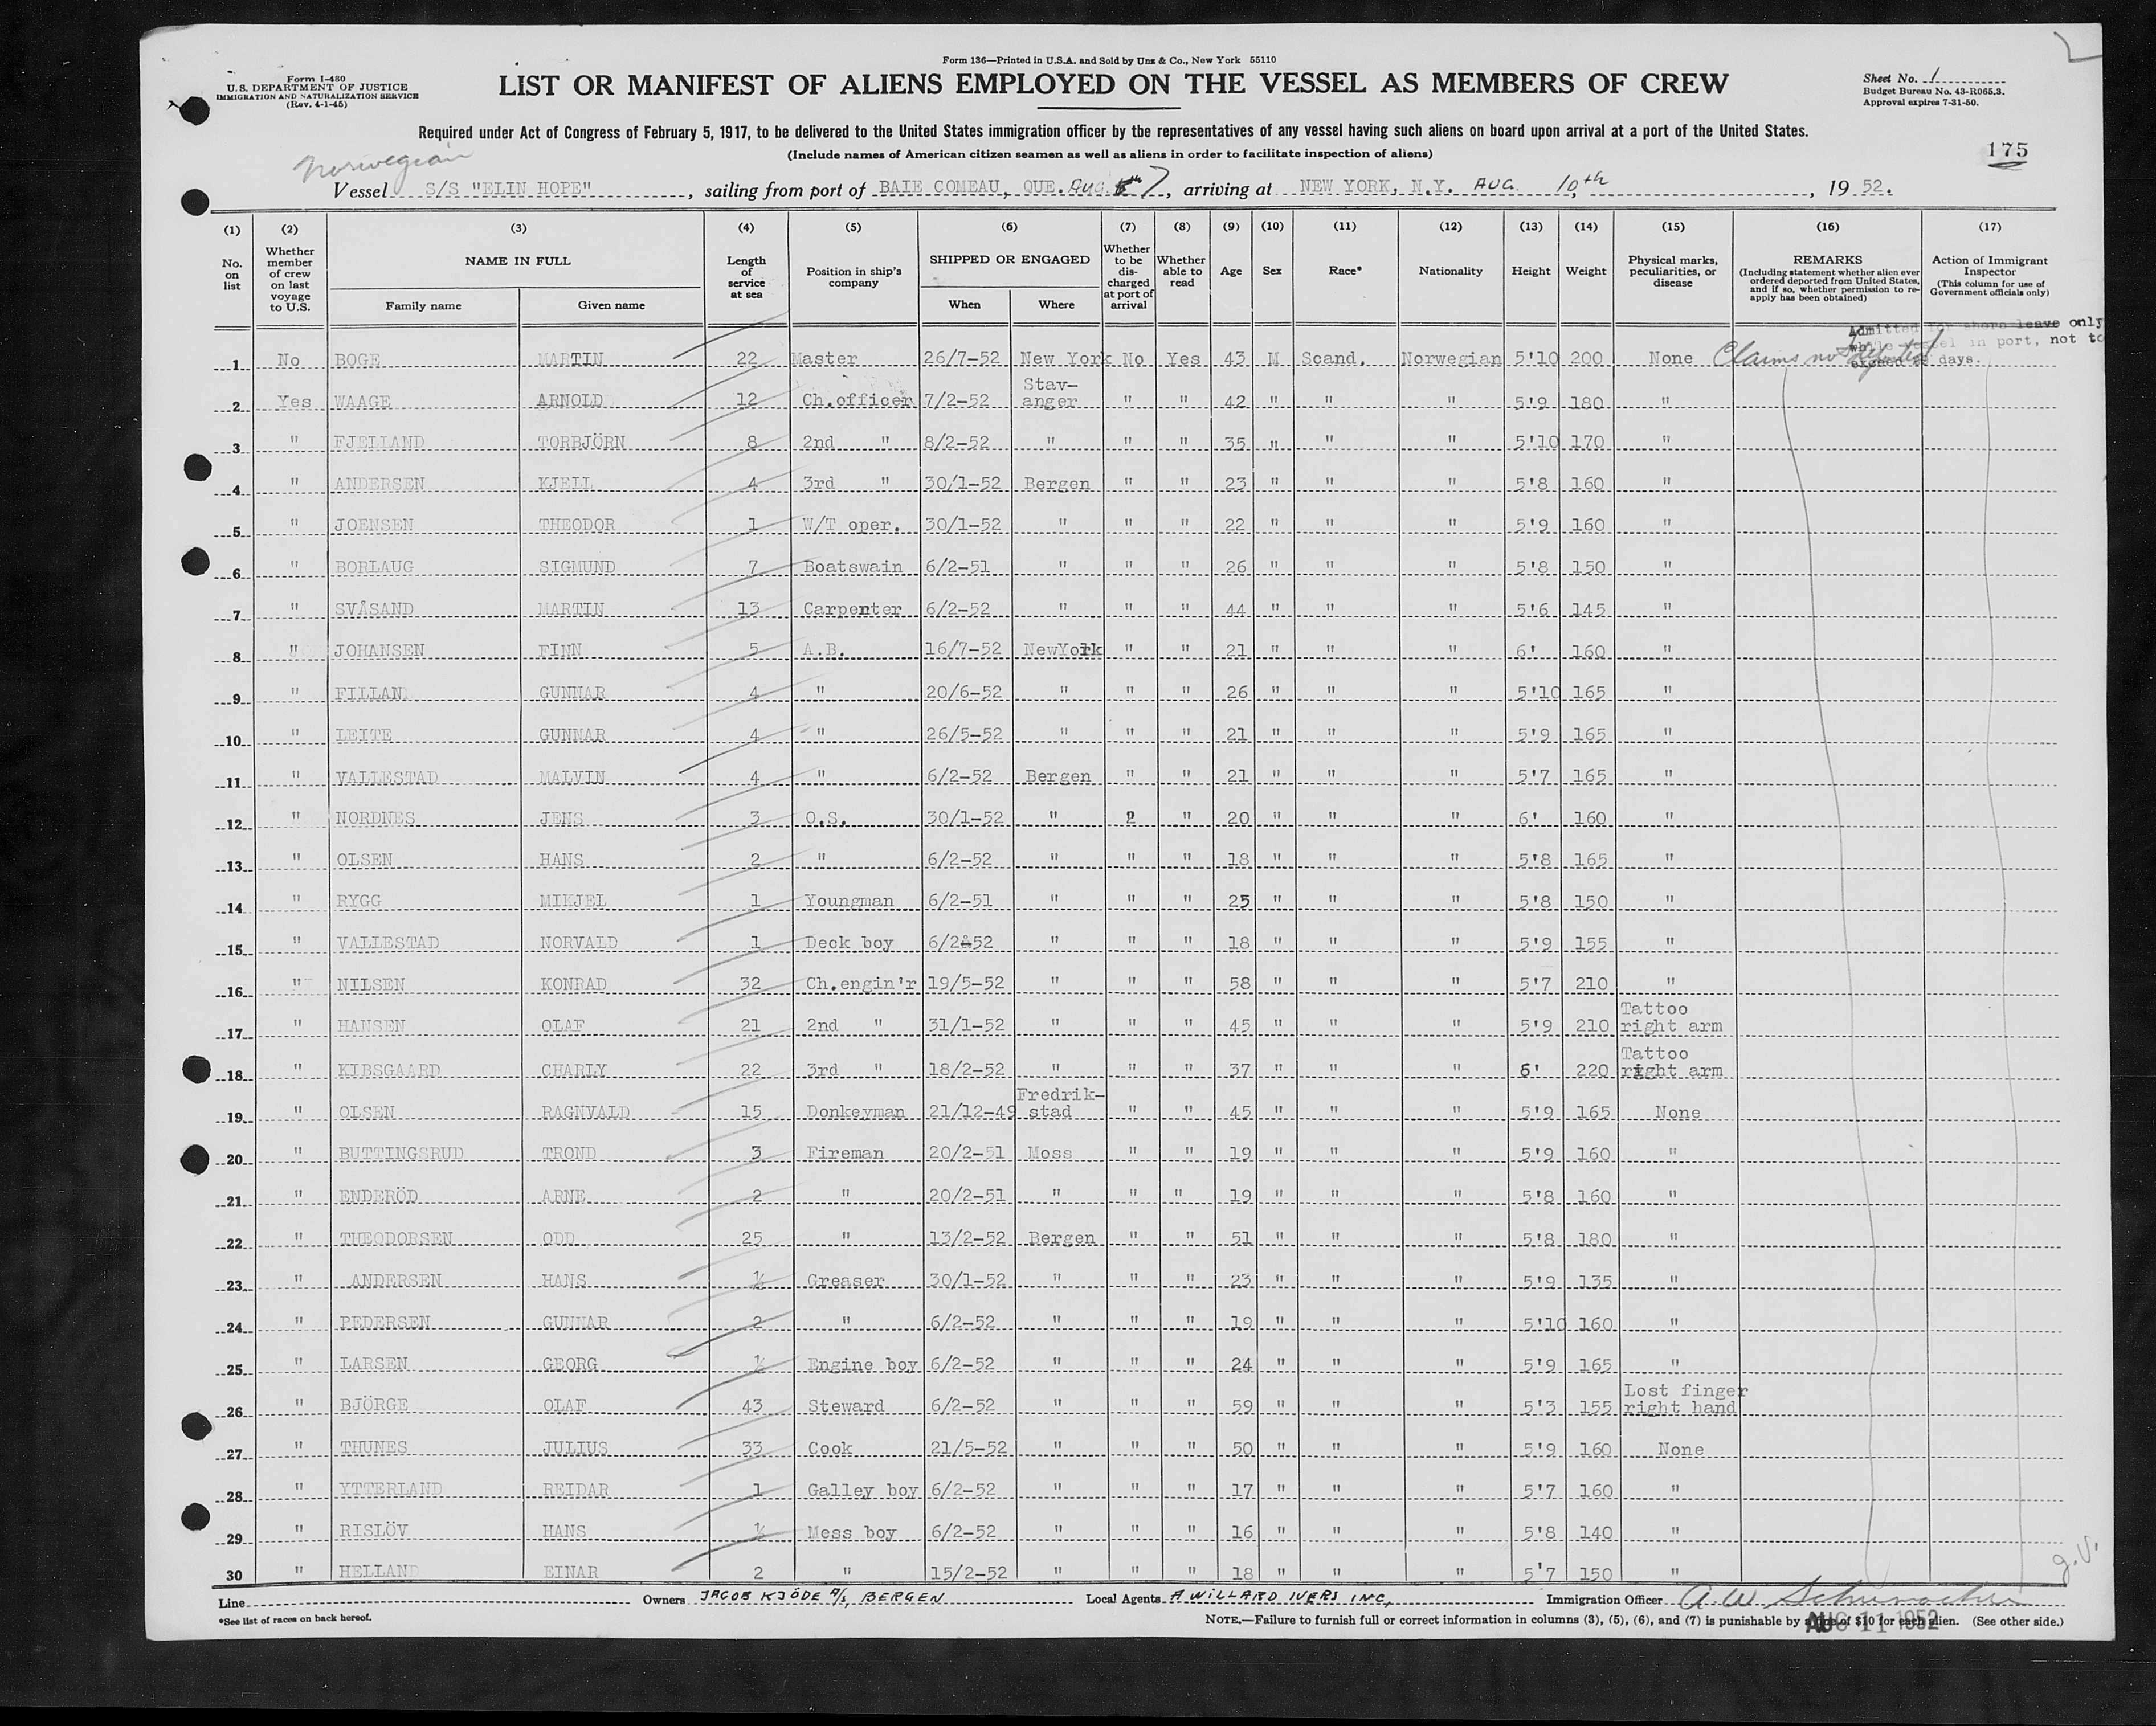 Form 136—Printed in U.S.A. and Sold by Unz & Co., New York 55110
Form I-480
U.S. DEPARTMENT OF JUSTICE
IMMIGRATION AND NATURALIZATION SERVICE
(Rev. 4-1-45)
LIST OR MANIFEST OF ALIENS EMPLOYED ON THE VESSEL AS MEMBERS OF CREW
Sheet No. 1
Budget Bureau No. 43-R065.3.
Approval expires 7-31-50.
Required under Act of Congress of February 5, 1917, to be delivered to the United States immigration officer by the representatives of any vessel having such aliens on board upon arrival at a port of the United States.
(Include names of American citizen seamen as well as aliens in order to facilitate inspection of aliens)
175
Norwegian
Vessel S/S "ELIN HOPE", sailing from port of BAIE COMEAU, QUE. AUG. 7, arriving at NEW YORK, N.Y. AUG 10th, 1952.
(1) (2) (3) (4) (5) (6) (7) (8) (9) (10) (11) (12) (13) (14) (15) (16) (17)
No. on list
Whether member of crew on last voyage to U.S.
NAME IN FULL
Family name
Given name
Length of service at sea
Position in ship's company
SHIPPED OR ENGAGED
When
Where
Whether to be discharged at port of arrival
Whether able to read
Age
Sex
Race*
Nationality
Height
Weight
Physical marks, peculiarities, or disease
REMARKS
(Including statement whether alien ever ordered deported from United States, and if so, whether permission to re-apply has been obtained)
Action of Immigrant Inspector
(This column for use of Government officials only)
Admitted for shore leave only
while vessel in port, not to
exceed 29 days.
1 No BOGE MARTIN 22 Master 26/7-52 New York No Yes 43 M Scand. Norwegian 5'10 200 None Claims no
2 Yes WAAGE ARNOLD 12 Ch.officer 7/2-52 Stav-anger " " 42 " " " 5'9 180 "
3 " FJELLAND TORBJÖRN 8 2nd " 8/2-52 " " " 35 " " " 5'10 170 "
4 " ANDERSEN KJELL 4 3rd " 30/1-52 Bergen " " 23 " " " 5'8 160 "
5 " JOENSEN THEODOR 1 W/T oper. 30/1-52 " " " 22 " " " 5'9 160 "
6 " BORLAUG SIGMUND 7 Boatswain 6/2-51 " " " 26 " " " 5'8 150 "
7 " SVÅSAND MARTIN 13 Carpenter 6/2-52 " " " 44 " " " 5'6 145 "
8 " JOHANSEN FINN 5 A.B. 16/7-52 NewYork " " 21 " " " 6' 160 "
9 " FILLAN GUNNAR 4 " 20/6-52 " " " 26 " " " 5'10 165 "
10 " LEITE GUNNAR 4 " 26/5-52 " " " 21 " " " 5'9 165 "
11 " VALLESTAD MALVIN 4 " 6/2-52 Bergen " " 21 " " " 5'7 165 "
12 " NORDNES JENS 3 O.S. 30/1-52 " " " 20 " " " 6' 160 "
13 " OLSEN HANS 2 " 6/2-52 " " " 18 " " " 5'8 165 "
14 " RYGG MIKJEL 1 Youngman 6/2-51 " " " 25 " " " 5'8 150 "
15 " VALLESTAD NORVALD 1 Deck boy 6/2&52 " " " 18 " " " 5'9 155 "
16 " NILSEN KONRAD 32 Ch.engin'r 19/5-52 " " " 58 " " " 5'7 210 "
17 " HANSEN OLAF 21 2nd " 31/1-52 " " " 45 " " " 5'9 210 Tattoo right arm
18 " KIBSGAARD CHARLY 22 3rd " 18/2-52 " " " 37 " " " 6' 220 Tattoo right arm
19 " OLSEN RAGNVALD 15 Donkeyman 21/12-49 Fredrik-stad " " 45 " " " 5'9 165 None
20 " BUTTINGSRUD TROND 3 Fireman 20/2-51 Moss " " 19 " " " 5'9 160 "
21 " ENDERÖD ARNE 2 " 20/2-51 " " " 19 " " " 5'8 160 "
22 " THEODORSEN ODD 25 " 13/2-52 Bergen " " 51 " " " 5'8 180 "
23 " ANDERSEN HANS ½ Greaser 30/1-52 " " " 23 " " " 5'9 135 "
24 " PEDERSEN GUNNAR 2 " 6/2-52 " " " 19 " " " 5'10 160 "
25 " LARSEN GEORG ½ Engine boy 6/2-52 " " " 24 " " " 5'9 165 "
26 " BJÖRGE OLAF 43 Steward 6/2-52 " " " 59 " " " 5'3 155 Lost finger right hand
27 " THUNES JULIUS 33 Cook 21/5-52 " " " 50 " " " 5'9 160 None
28 " YTTERLAND REIDAR 1 Galley boy 6/2-52 " " " 17 " " " 5'7 160 "
29 " RISLÖV HANS ½ Mess boy 6/2-52 " " " 16 " " " 5'8 140 "
30 " HELLAND EINAR 2 " 15/2-52 " " " 18 " " " 5'7 150 "
J.V.
Line Owners JACOB KJÖDE A/S, BERGEN Local Agents A WILLARD IVERS INC, Immigration Officer A.W. Schumacher
*See list of races on back hereof.
NOTE.—Failure to furnish full or correct information in columns (3), (5), (6), and (7) is punishable by a fine of $10 for each alien. (See other side.)
AUG 11 1952